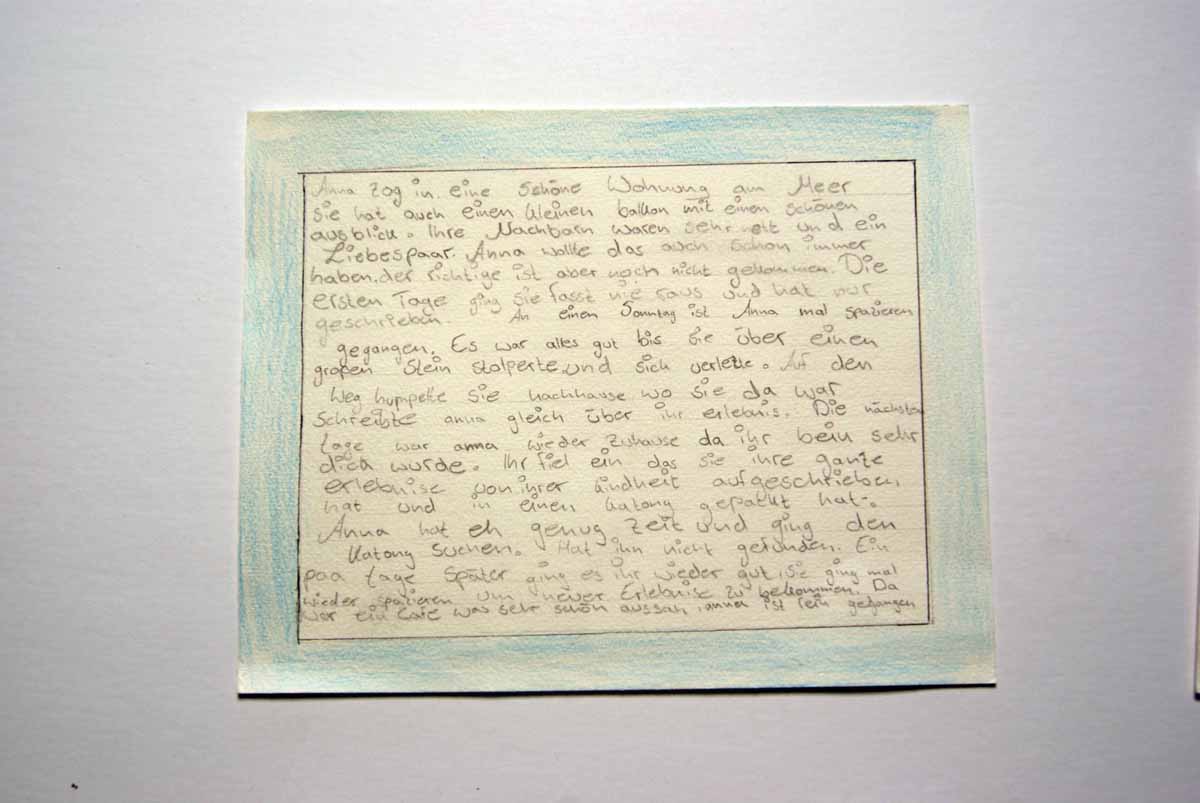 Anna zog in eine schöne Wohnung am Meer
sie hat auch einen kleinen balkon mit einen schönen
ausblick. Ihre Nachbarn waren sehr nett und ein
Liebespaar. Anna wollte das auch schon immer
haben. der richtige ist aber noch nicht gekommen. Die
ersten Tage ging sie fasst nie raus und hat nur
geschrieben. An einen Sonntag ist Anna mal spazieren
gegangen. Es war alles gut bis sie über einen
großen Stein stolperte und sich verletzte. Auf den
Weg humpelte sie nachhause wo sie da war
schreibte anna gleich über ihr erlebnis. Die nächsten
tage war anna wieder zuhause da ihr bein sehr
dick wurde. Ihr fiel ein das sie ihre ganze
erlebnise von ihrer kindheit aufgeschrieben,
hat und in einen katong gepackt hat.
Anna hat eh genug Zeit und ging den
katong suchen. Hat ihn nicht gefunden. Ein
paa tage später ging es ihr wieder gut, sie ging mal
wieder spazieren um neuer Erlebnise zu bekommen. Da
war ein Cafe was sehr schön aussah, anna ist rein gegangen